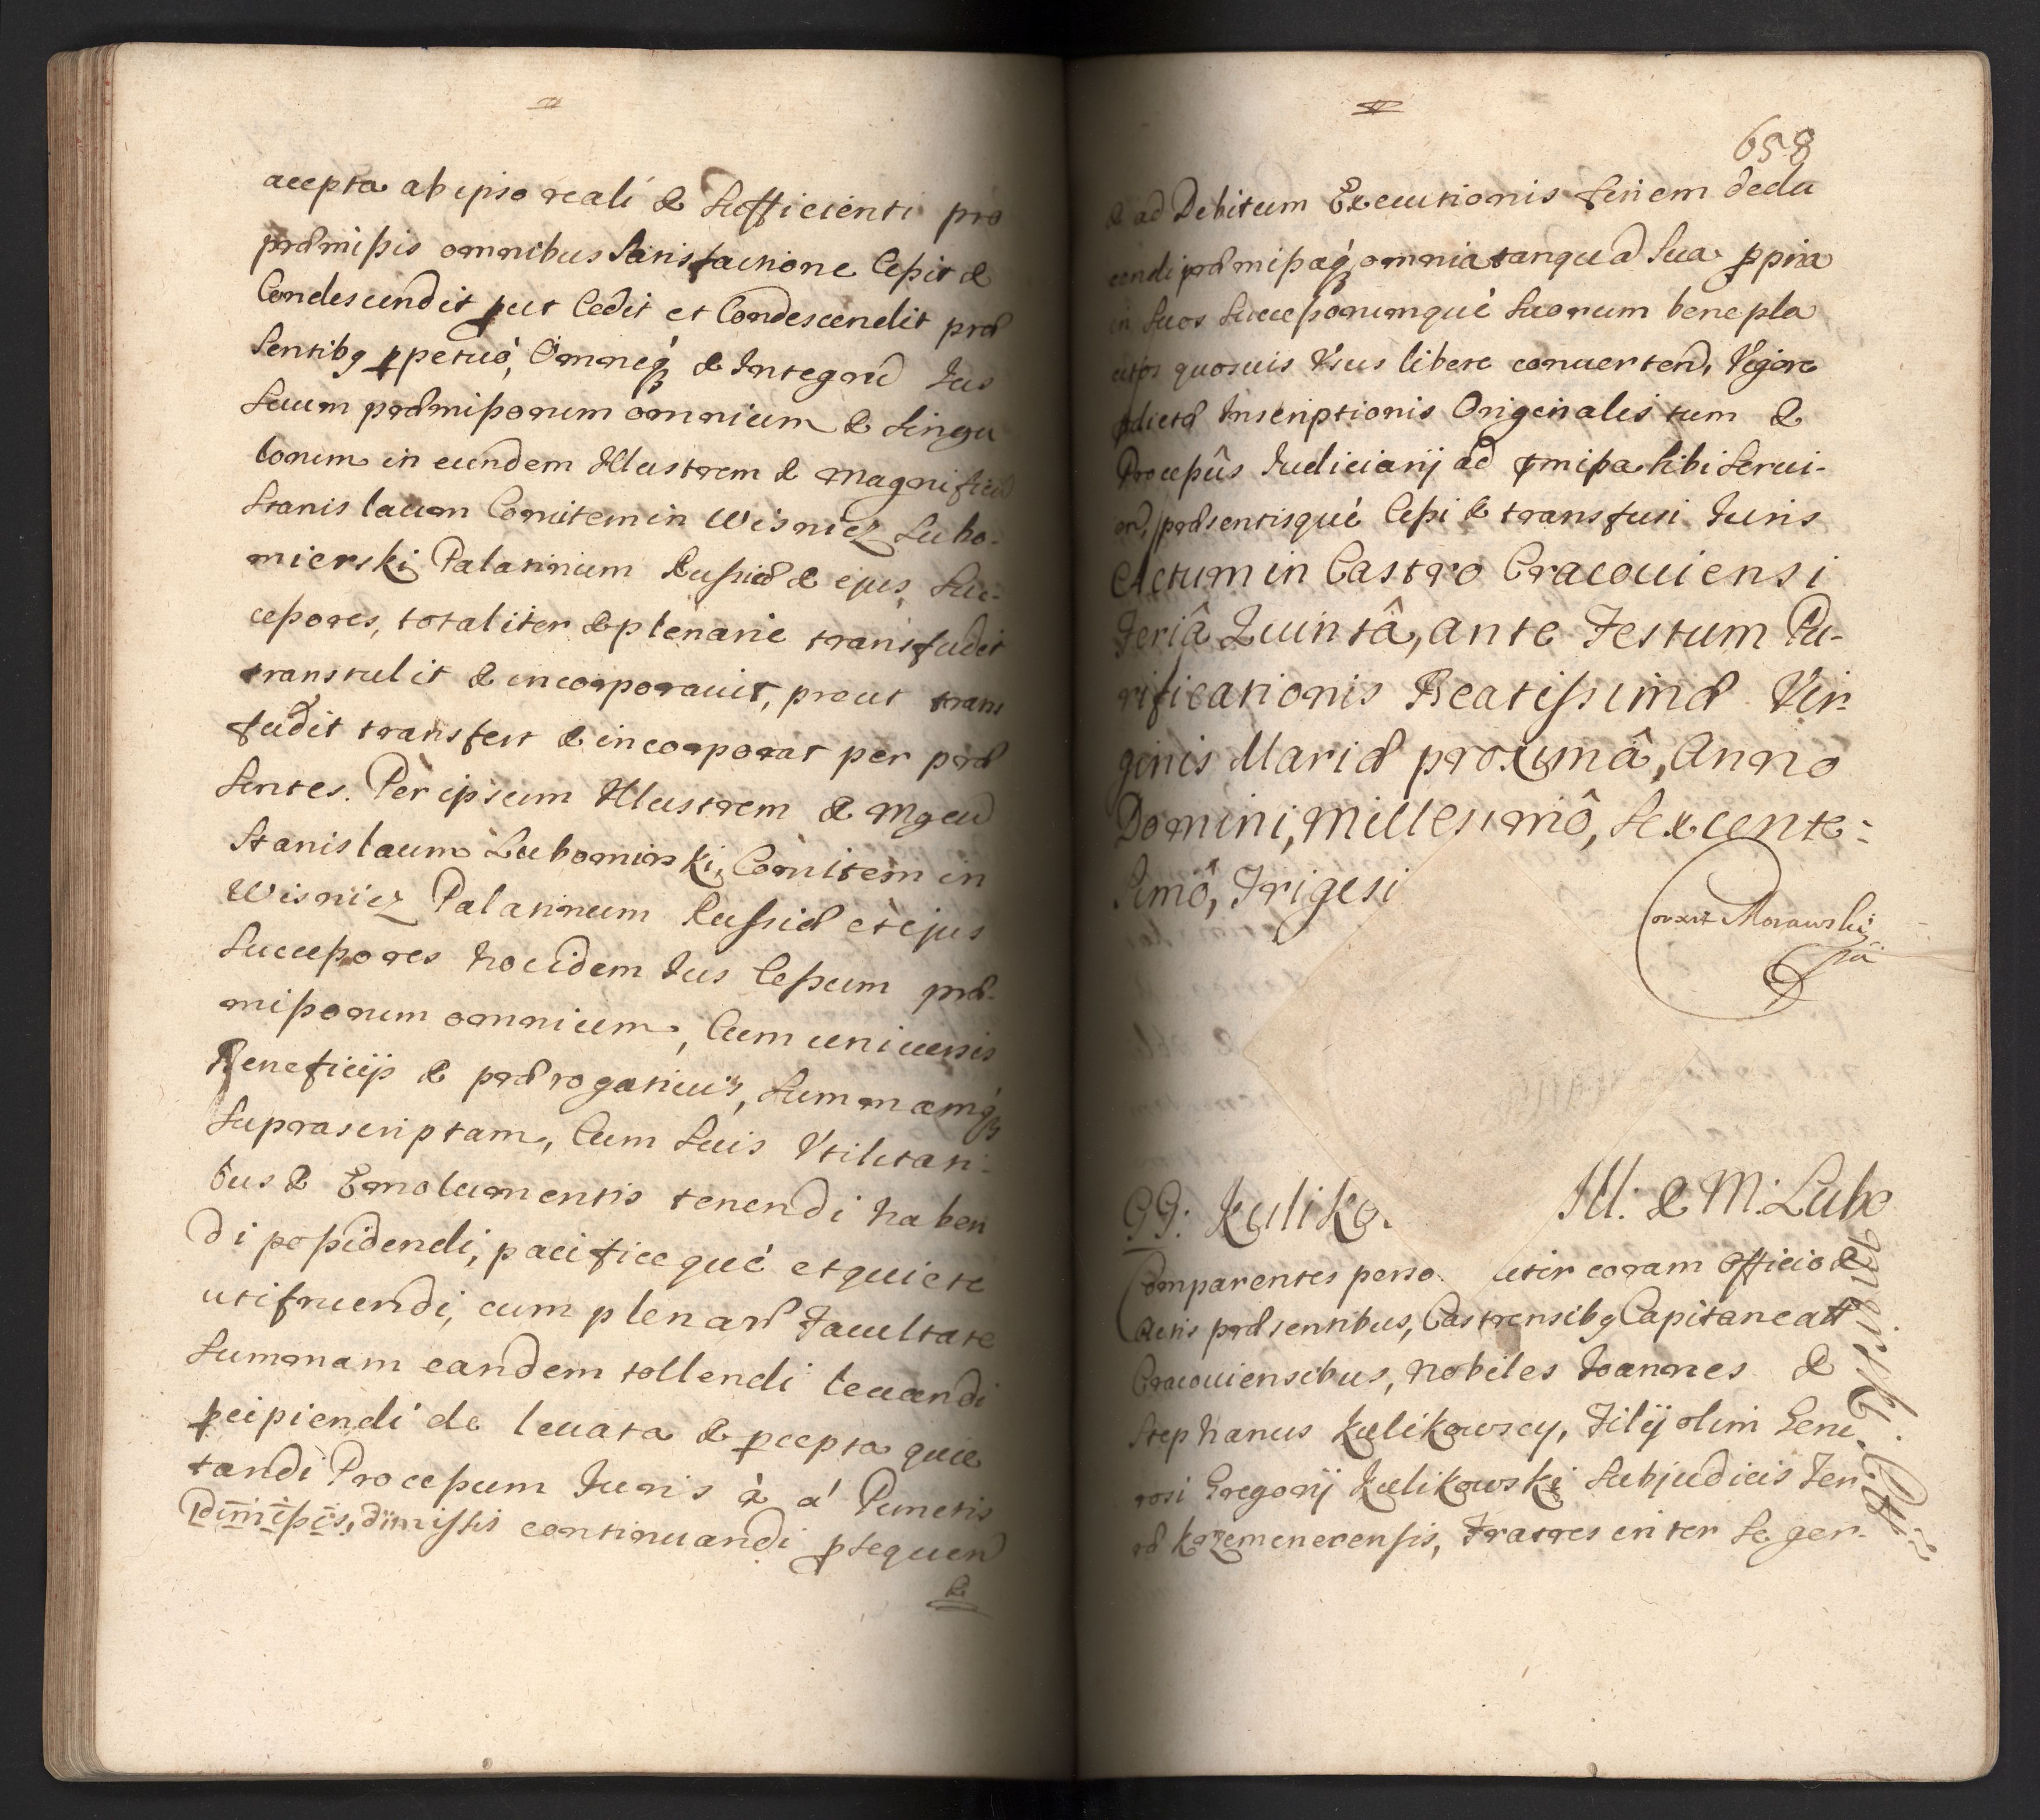 accepta ab ipso reali & Sufficienti pro
præmißis omnibus Satisfactione Ceßit &
Condescendit put Cedit et Condescendit præ
Sentibq ppetuò, Omneq & Integrũ Jus
Suum præmißorum omnium & Singu
lorum in eundem Illustrem & Magnificũ
Stanislaum Comitem in Wisnicz Lubo-
mierski Palatinum Rußiæ & ejus Suc-
ceßores, totaliter & plenarie transfudit
transtulit & incorporauit, prout trans
fudit transfert & incorporat per præ
Sentes. Per ipsum Illustrem & Mgcũ
Stanislaum Lubomirski, Comitem in
Wisnicz Palatinum Russiæ et ejus
Succeßores hoc idem Jus Ceßum præ-
mißorum omnium, Cum uniuersis
Beneficijs & prærogatiuis, Summamq
Suprascriptam, Cum Suis Vtilitati-
bus & Emolumentis tenendi haben
di poßidendi, pacificequè et quiete
utifruendi, cum plenariã Facultate
Summam eandem tollendi leuandi
pcipiendi de leuata & pcepta quie
tandi Proceßum Juris à á Punctis
Dimißis, dimissis continuandi psequen
&
658
& ad Debitum Executionis finem dedu
cendi præmißaq omnia tanquã Sua ppria
in Suos Succeßorumquè Suorum benepla
citos quosuis Vsus libere conuertend, Vigore
pdictæ Inscriptionis Originalis tum &
Proceßûs Judiciarij ad pmißa Sibi Serui-
præsentisquè Ceßi & transfusi Juris
Actum in Castro Cracouiensi
Feriâ Quintâ, ante Festum Pu-
rificationis Beatissimæ Vir-
ginis Mariæ proximâ, Anno
Domini, Millesimô, Sexcente-
Simô, Trigesi
Morawski
99: Kuliko. Ill: & M: Lubo
mirski. Pal:
Comparentes perso. liter coram Officio &
Actis præsentibus, Castrensibq Capitaneatt
Cracouiensibus, Nobiles Joannes &
Stephanus Kulikowscy, Filij olim Gene
rosi Gregorij Kulikowski Subjudicis Ter
ræ Krzemenecensis, Fratres inter Se ger-